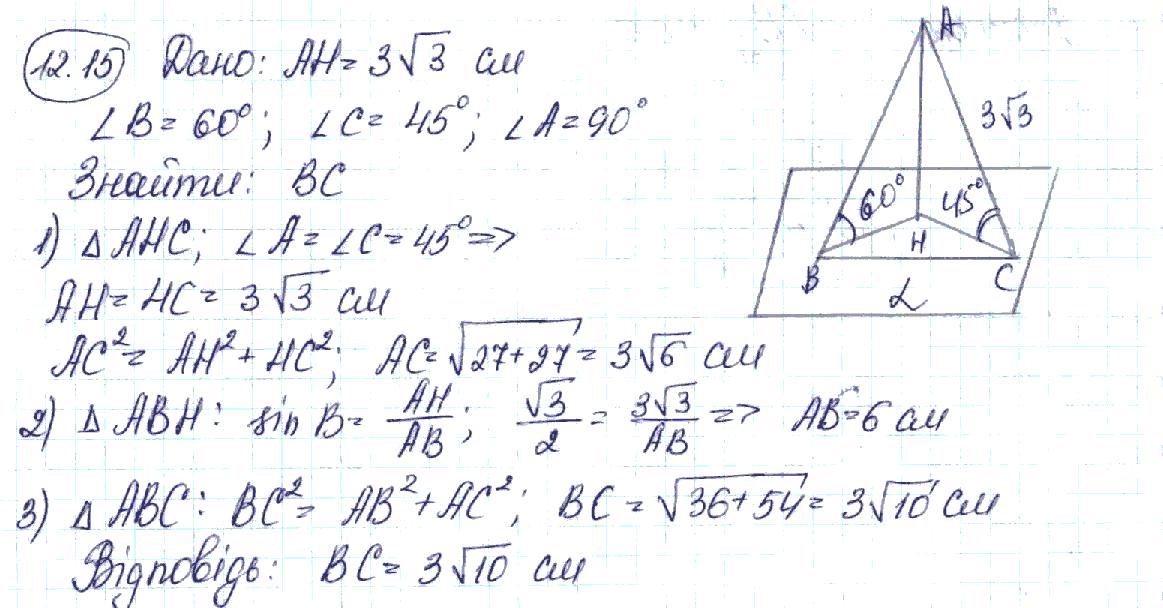 12.15 Дано: AH = 3√3 см
∠B = 60°; ∠C = 45°; ∠A = 90°
Знайти: BC
1) △AHC; ∠A = ∠C = 45° =>
AH = HC = 3√3 см
AC² = AH² + HC²; AC = √(27+27) = 3√6 см
2) △ABH: sin B = AH/AB; √3/2 = 3√3/AB => AB = 6 см
3) △ABC: BC² = AB² + AC²; BC = √(36+54) = 3√10 см
Відповідь: BC = 3√10 см
A
3√3
60° 45°
H
B C
α